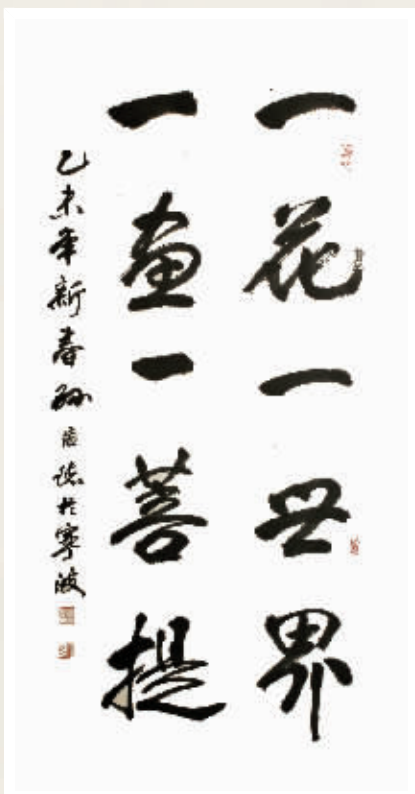 一花一世界
一画一菩提
乙未年新春孙於宁波